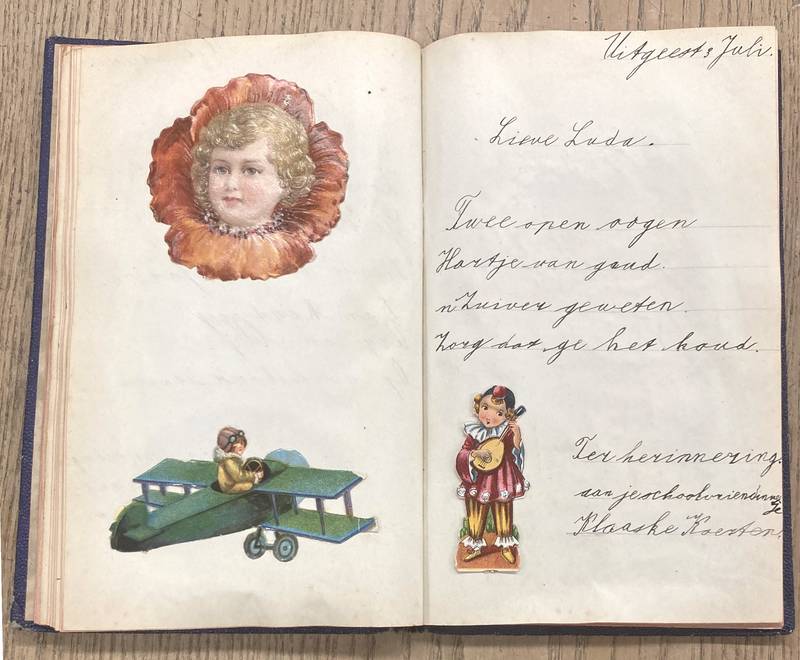 Uitgeest 3 Juli.
Lieve Luda.
Twee open oogen
Hartje van goud.
n'Zuiver geweten.
Zorg dat ge het houd.
Ter herinnering.
aan je schoolvriendinne
tje
Klaaske Koesten.